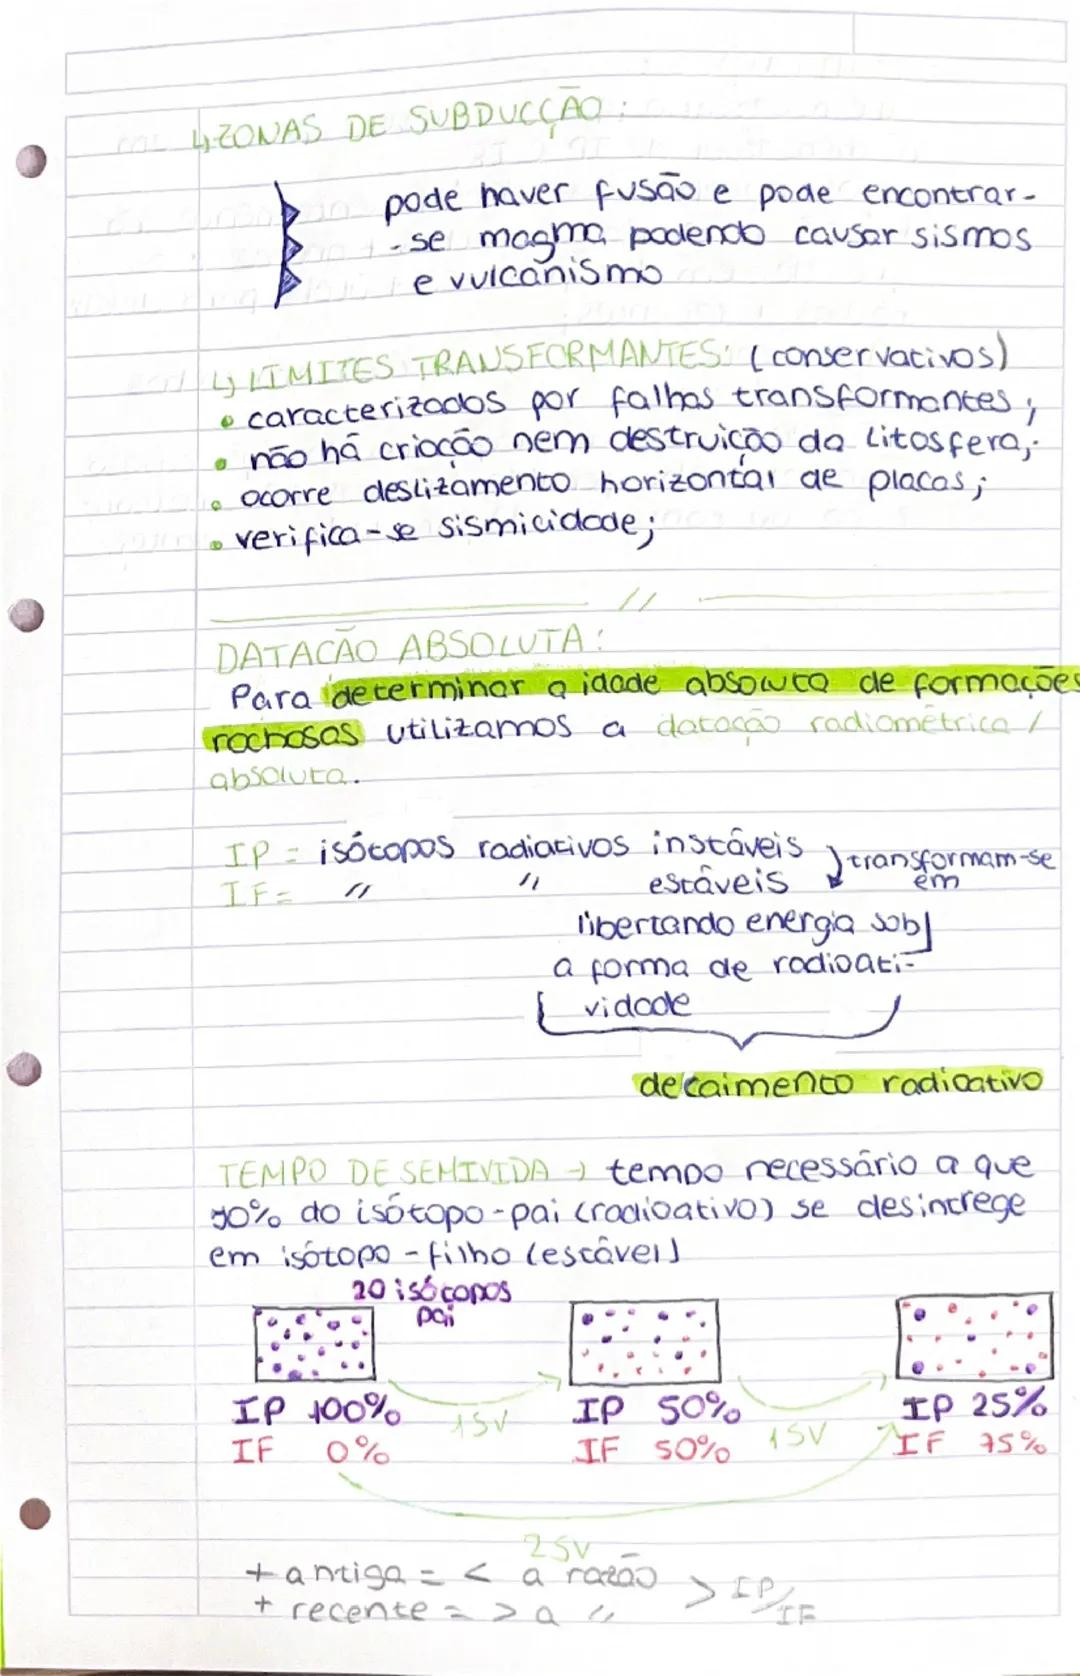 ↳ ZONAS DE SUBDUCÇÃO :
pode haver fusão e pode encontrar-
-se magma podendo causar sismos
e vulcanismo
↳ LIMITES TRANSFORMANTES: (conservativos)
• caracterizados por falhas transformantes;
• não há criação nem destruição da litosfera;
• ocorre deslizamento horizontal de placas;
• verifica-se sismicidade;
//
DATACÃO ABSOLUTA :
Para determinar a idade absoluta de formações
rochosas utilizamos a datação radiométrica /
absoluta.
IP = isótopos radiativos instáveis
transformam-se
IF = " " estáveis
em
libertando energia sob
a forma de radioati-
vidade
decaimento radioativo
TEMPO DE SEMIVIDA → tempo necessário a que
50% do isótopo-pai (radioativo) se desintrege
em isótopo-filho (estável)
20 isótopos
pai
IP 100% 1SV IP 50% 1SV IP 25%
IF 0% IF 50% IF 75%
2SV
+ antiga = < a razão > IP/IF
+ recente = > a "